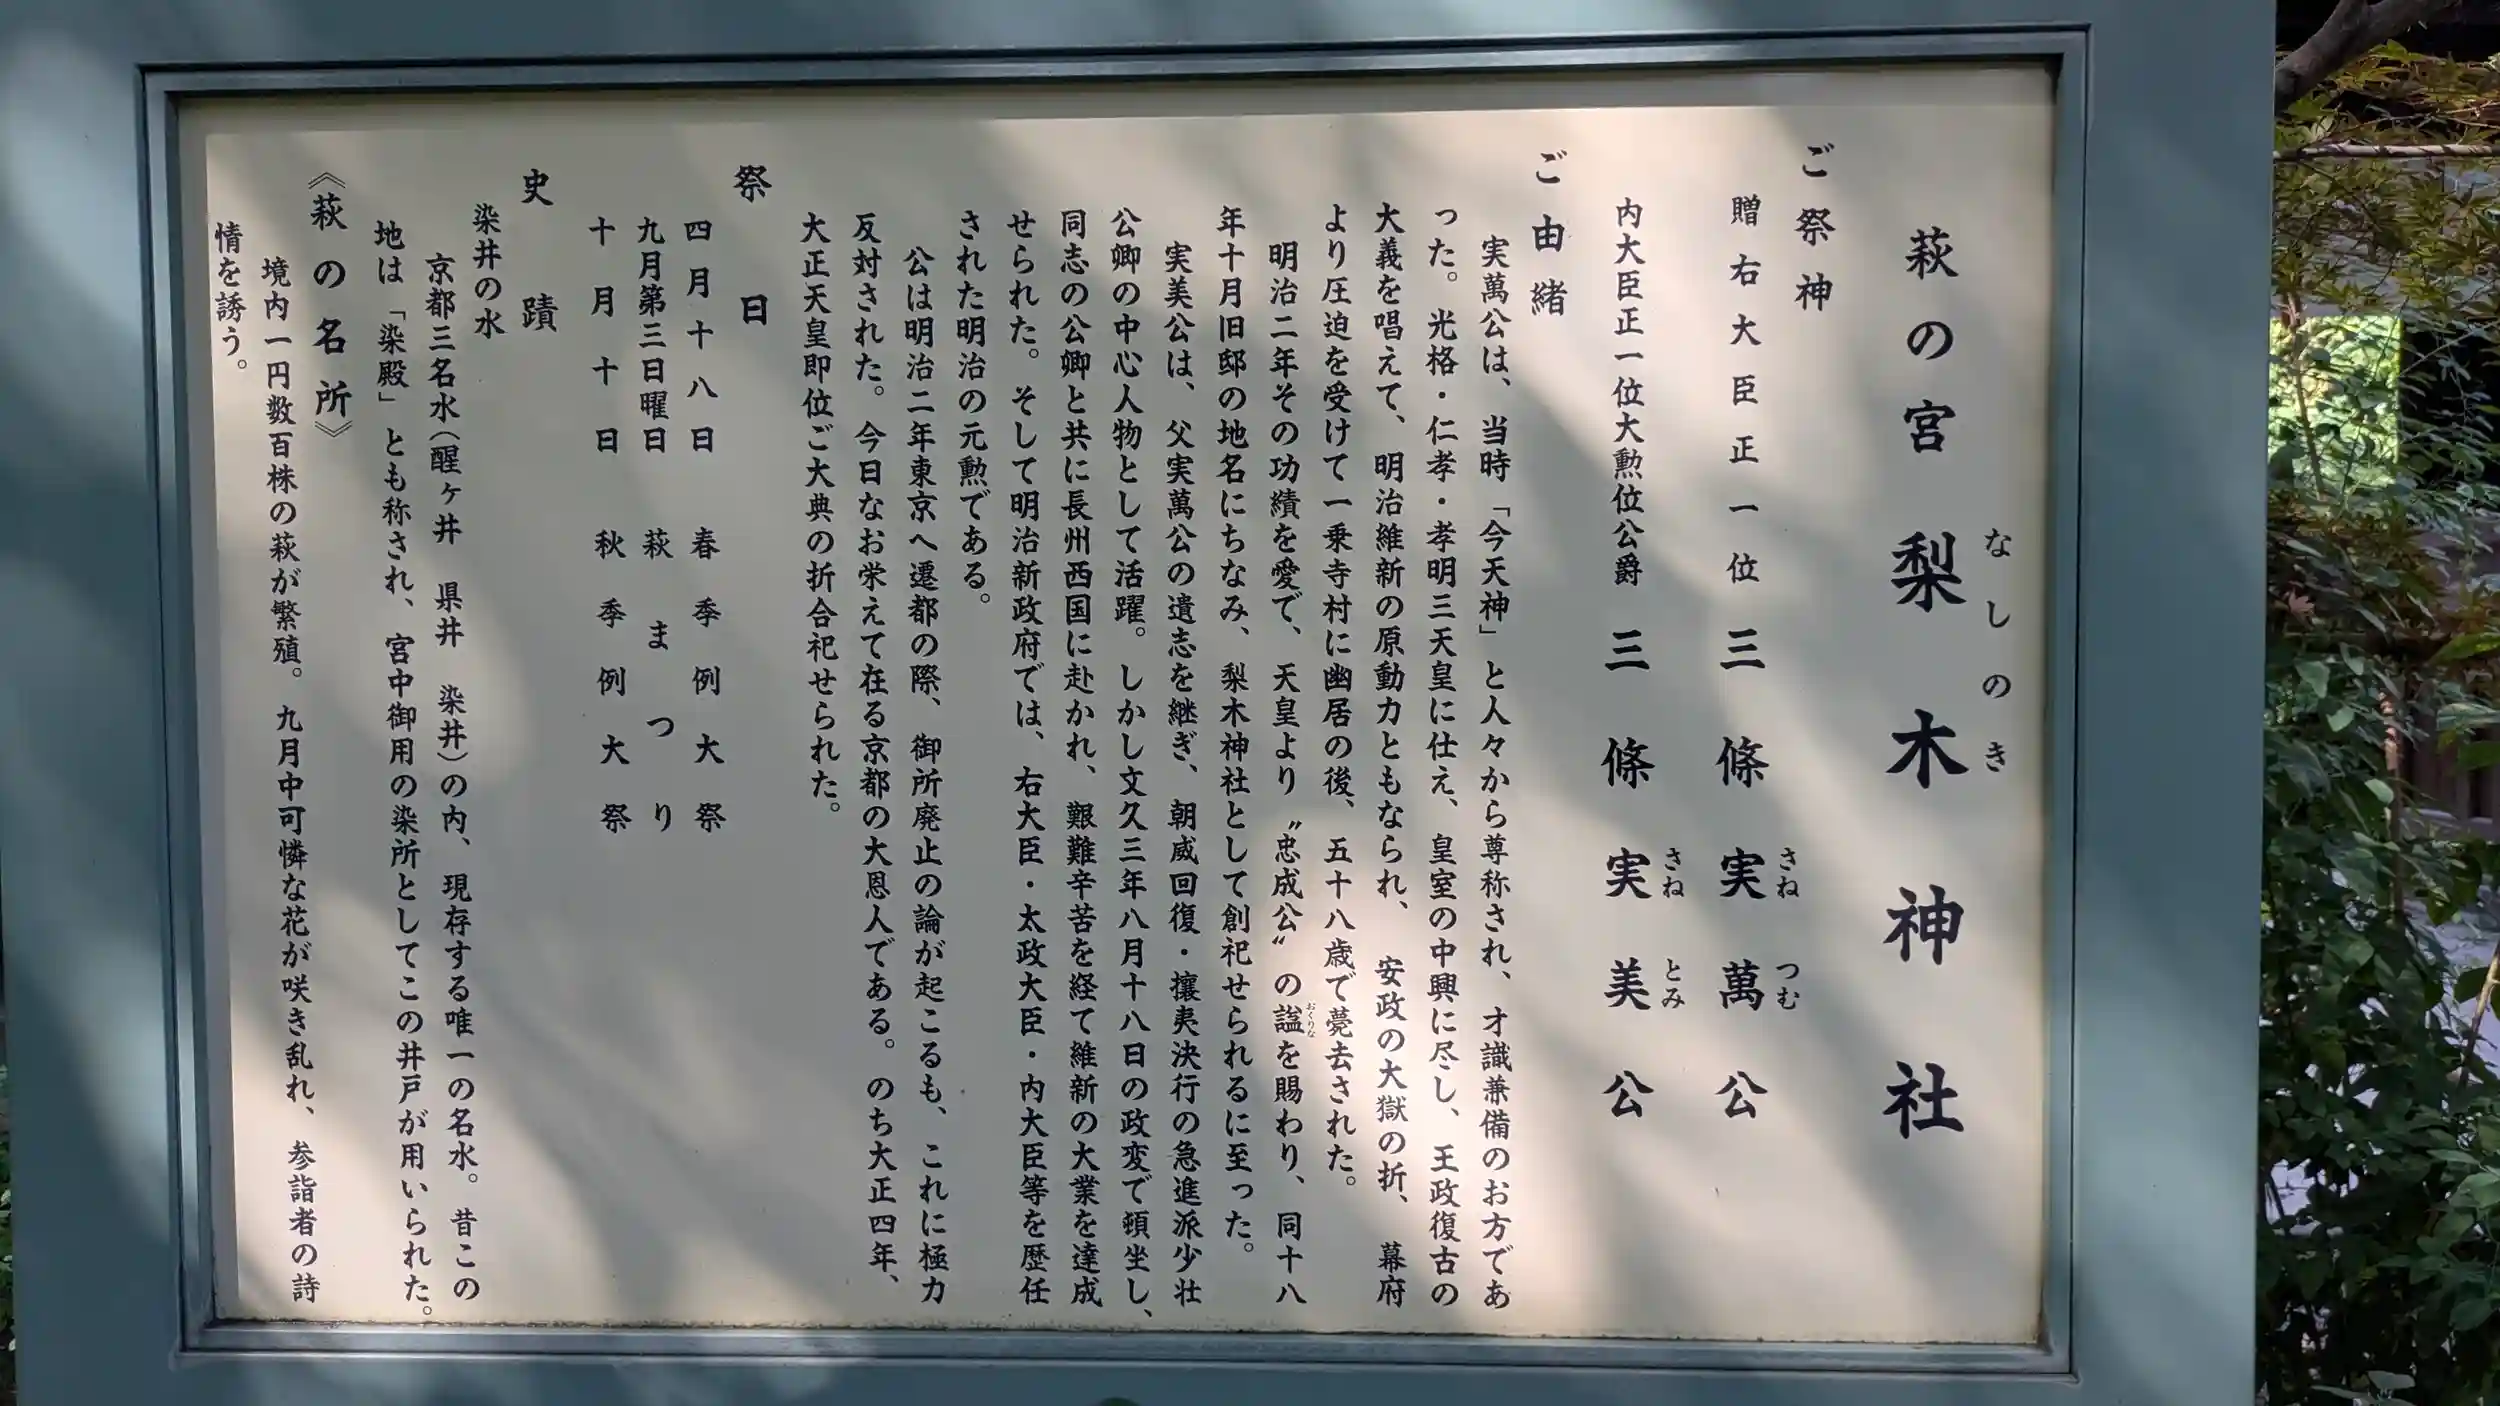 萩の宮 梨木神社
なしのき
ご祭神
贈右大臣正一位 三條実萬公
さね つむ
内大臣正一位大勲位公爵 三條実美公
さね とみ
ご由緒
実萬公は、当時「今天神」と人々から尊称され、才識兼備のお方であ
った。光格・仁孝・孝明三天皇に仕え、皇室の中興に尽し、王政復古の
大義を唱えて、明治維新の原動力ともなられ、安政の大獄の折、幕府
より圧迫を受けて一乗寺村に幽居の後、五十八歳で薨去された。
明治二年その功績を愛で、天皇より〝忠成公〟の諡を賜わり、同十八
おくりな
年十月旧邸の地名にちなみ、梨木神社として創祀せられるに至った。
実美公は、父実萬公の遺志を継ぎ、朝威回復・攘夷決行の急進派少壮
公卿の中心人物として活躍。しかし文久三年八月十八日の政変で頓坐し、
同志の公卿と共に長州西国に赴かれ、艱難辛苦を経て維新の大業を達成
せられた。そして明治新政府では、右大臣・太政大臣・内大臣等を歴任
された明治の元勲である。
公は明治二年東京へ遷都の際、御所廃止の論が起こるも、これに極力
反対された。今日なお栄えて在る京都の大恩人である。のち大正四年、
大正天皇即位ご大典の折合祀せられた。
祭日
四月十八日 春季例大祭
九月第三日曜日 萩まつり
十月十日 秋季例大祭
史蹟
染井の水
京都三名水(醒ヶ井 県井 染井)の内、現存する唯一の名水。昔この
地は「染殿」とも称され、宮中御用の染所としてこの井戸が用いられた。
《萩の名所》
境内一円数百株の萩が繁殖。九月中可憐な花が咲き乱れ、参詣者の詩
情を誘う。